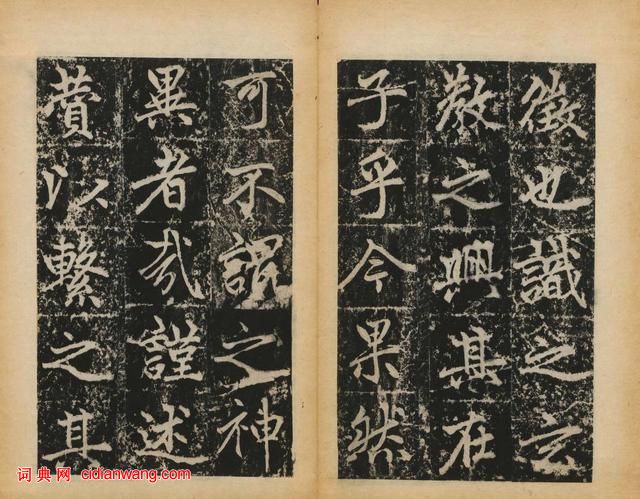 徵也識之云
教之興其在
子乎今果然
可不謂之神
異者哉謹述
贊以繫之其
词典网 cidianwang.com